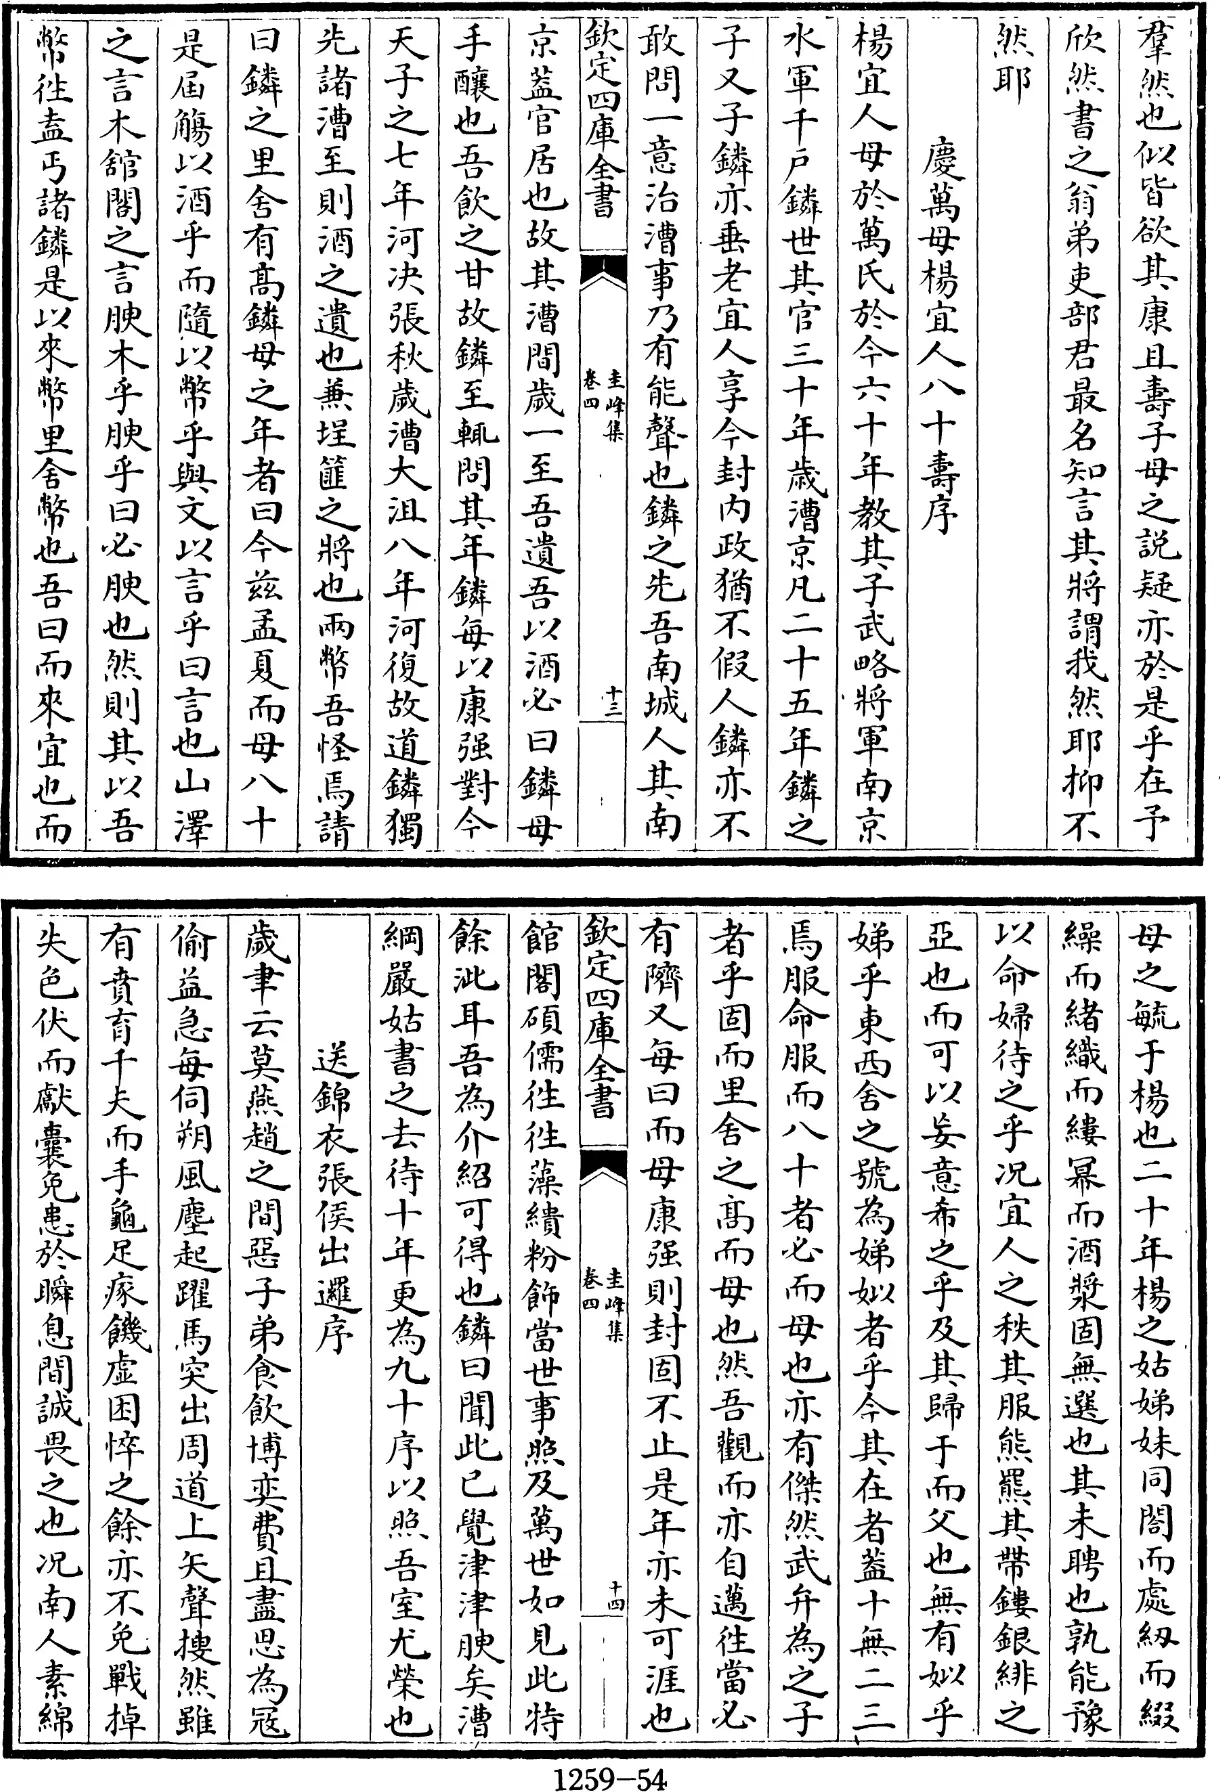 羣然也似皆欲其康且壽子母之說疑亦於是乎在予
欣然書之翁弟吏部君最名知言其將謂我然耶抑不
然耶
慶萬母楊宜人八十壽序
楊宜人母於萬氏於今六十年教其子武略將軍南京
水軍千戶鏻世其官三十年歲漕京凡二十五年鏻之
子又子鏻亦垂老宜人享今封内政猶不假人鏻亦不
敢問一意治漕事乃有能聲也鏻之先吾南城人其南
欽定四庫全書
圭峰集
卷四
十三
京葢官居也故其漕間歲一至吾遺吾以酒必曰鏻母
手釀也吾飲之甘故鏻至輒問其年鏻每以康强對今
天子之七年河决張秋歲漕大沮八年河復故道鏻獨
先諸漕至則酒之遺也兼埕篚之將也兩幣吾怪焉請
曰鏻之里舍有高鏻母之年者曰今兹孟夏而母八十
是屆觴以酒乎而隨以幣乎與文以言乎曰言也山澤
之言木舘閣之言腴木乎腴乎曰必腴也然則其以吾
幣徃盍丐諸鏻是以來幣里舍幣也吾曰而來宜也而
母之毓于楊也二十年楊之姑娣妹同閤而處紉而綴
繰而緒織而縷冪而酒漿固無選也其未聘也孰能豫
以命婦待之乎况宜人之秩其服熊羆其帶鏤銀緋之
亞也而可以妄意希之乎及其歸于而父也無有姒乎
娣乎東西舍之號為娣姒者乎今其在者葢十無二三
焉服命服而八十者必而母也亦有傑然武弁為之子
者乎固而里舍之髙而母也然吾觀而亦自邁徃當必
有隮又每曰而母康强則封固不止是年亦未可涯也
欽定四庫全書
圭峰集
卷四
十四
館閣碩儒徃徃藻繢粉飾當世事照及萬世如見此特
餘泚耳吾為介紹可得也鏻曰聞此已覺津津腴矣漕
綱嚴姑書之去待十年更為九十序以照吾室尤榮也
送錦衣張侯出邏序
歲聿云莫燕趙之間惡子弟食飲博奕費且盡思為冦
偷益急每伺朔風塵起躍馬突出周道上矢聲搜然雖
有賁育千夫而手龜足瘃饑虛困悴之餘亦不免戰掉
失色伏而獻囊免患於瞬息間誠畏之也况南人素綿
1259-54